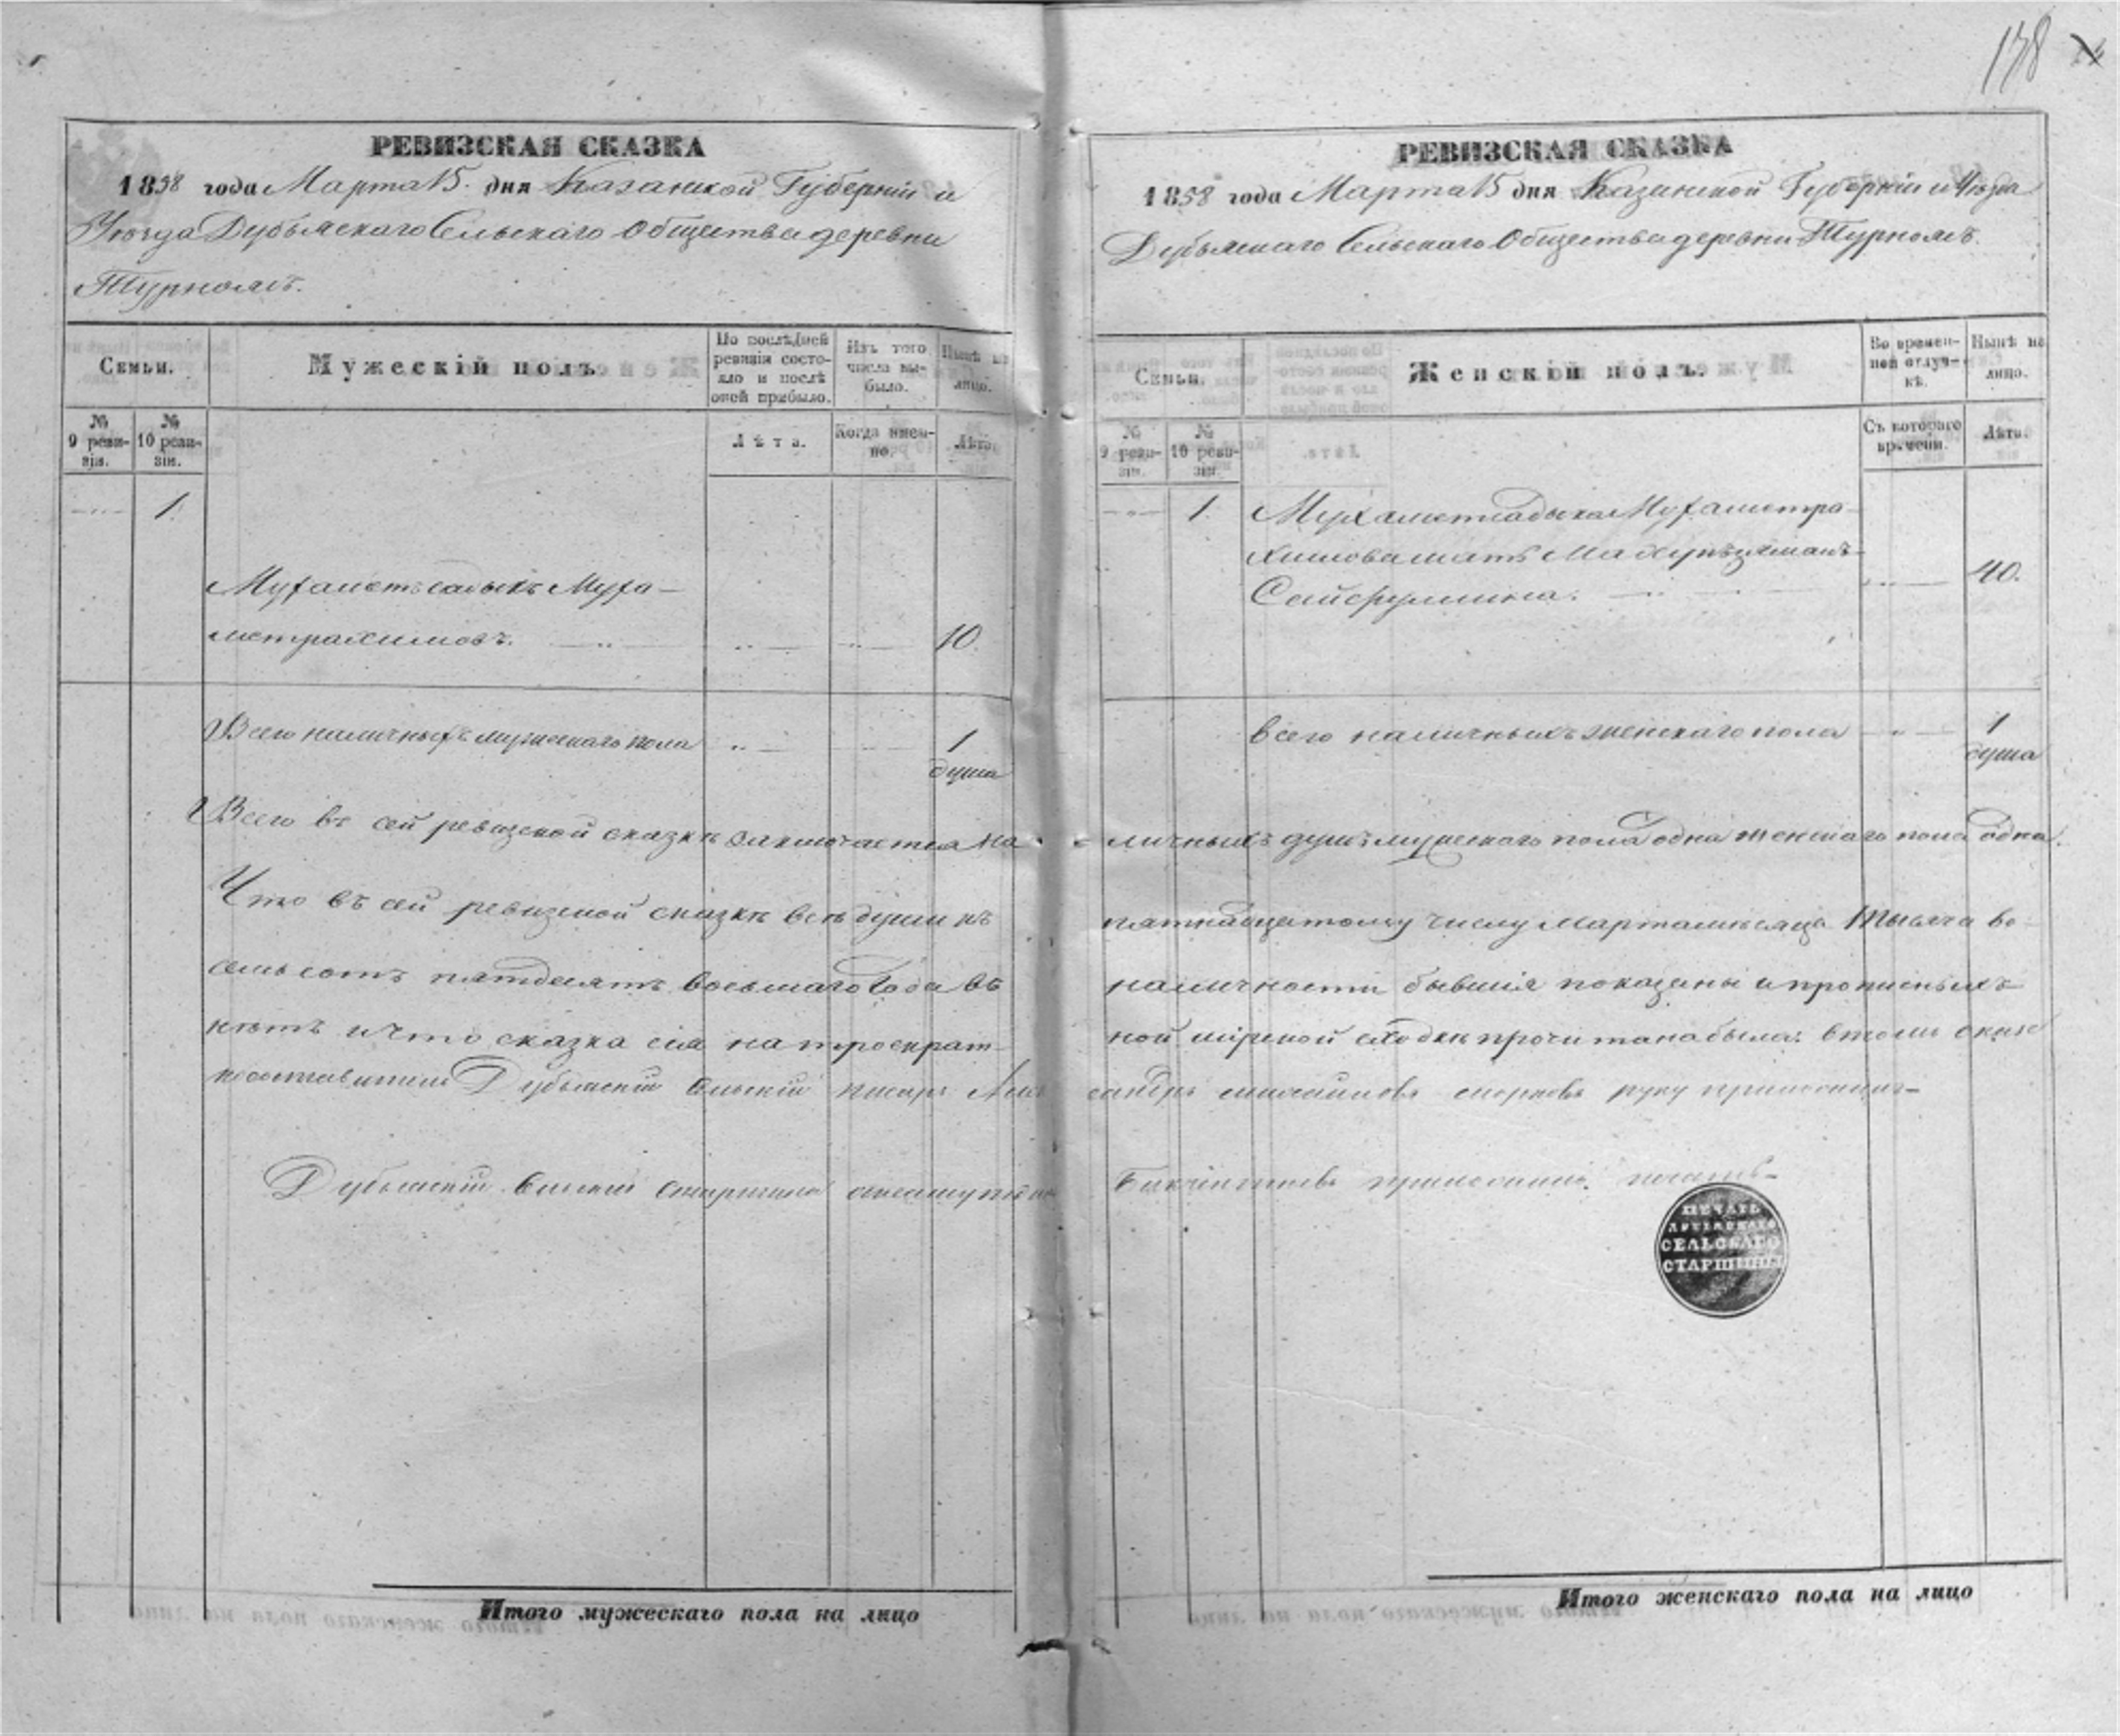 138
РЕВИЗСКАЯ СКАЗКА
1858 года Марта 15. дня Казанской Губерніи и
Уѣзда Дубъяскаго Сельскаго Общества деревни
Турнояшъ.
Семьи.
Мужескій полъ.
По послѣдней ревизіи состояло и послѣ оней прибыло.
Изъ того числа выбыло.
Нынѣ на лицо.
№ 9 ревизіи.
№ 10 ревизіи.
Лѣта.
Когда именно.
Лѣта.
1.
Мухаметъ садыкъ Муха-
метрахимовъ.
10.
Всего наличныхъ мужескаго пола
1
душа
Всего въ сей ревизской сказкѣ заключается на
Что въ сей ревизской сказкѣ всѣ души къ
семьсотъ пятдесятъ восьмаго Года въ
нѣтъ и что сказка сія на троекрат-
Дубъяскій сельскій писарь
Дубъяскій сельскій старшина
Итого мужескаго пола на лицо
РЕВИЗСКАЯ СКАЗКА
1858 года Марта 15 дня Казанской Губерніи и Уѣзда
Дубъяскаго Сельскаго Общества деревни Турнояшъ.
Семьи.
Женскій полъ.
Во временной отлучкѣ.
Нынѣ на лицо.
№ 9 ревизіи.
№ 10 ревизіи
Съ котораго времени.
Лѣта.
1.
Мухаметсадыка Мухаметра-
химова мать
Сейфулина.
40.
Всего наличныхъ женскаго пола
1
душа
личныхъ душъ мужескаго пола одна женскаго пола одна.
пятнадцатому числу Марта мѣсяца тысяча во-
наличности бывшія показаны и прописныхъ
ной мірской сходкѣ прочитана была: въ томъ
руку приложилъ
приложилъ печать
ПЕЧАТЬ
СЕЛЬСКАГО
СТАРШИНЫ
Итого женскаго пола на лицо